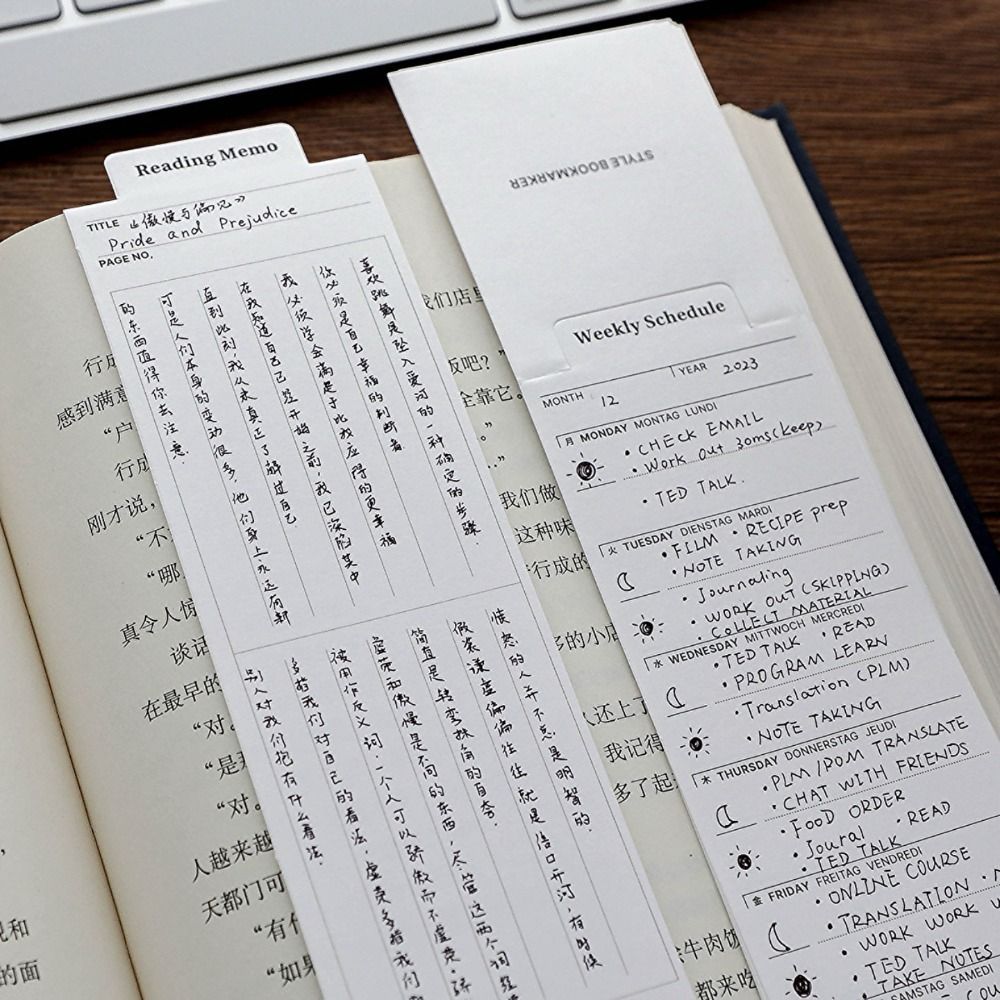 Reading Memo
TITLE 《傲慢与偏见》
Pride and Prejudice
PAGE NO.
喜欢跳舞是坠入爱河的一种确定的步骤.
你必须是自己幸福的判断者
我必须学会满足于比我应得的更幸福
在我知道自己已经开始之前,我已深陷其中
直到此刻,我从未真正了解过自己
可是人们本身的变动很多,他们身上永远有新
的东西值得你去注意.
愤怒的人并不总是明智的.
假装谦虚偏偏往往就是信口开河,有时候
简直是转弯抹角的自夸.
虚荣和傲慢是不同的东西,尽管这两个词经
被用作反义词.一个人可以骄傲而不虚荣.骄
多指我们对自己的看法,虚荣多指我们
别人对我们抱有什么看法.
STYLE BOOKMARKER
Weekly Schedule
MONTH 12 YEAR 2023
月 MONDAY MONTAG LUNDI
• CHECK EMAIL
• Work out 30ms(keep)
• TED TALK.
火 TUESDAY DIENSTAG MARDI
• FILM • RECIPE prep
• NOTE TAKING
• Journaling
• WORK OUT (SKIPPING)
• COLLECT MATERIAL
水 WEDNESDAY MITTWOCH MERCREDI
• TED TALK • READ
• PROGRAM LEARN
• Translation (PLM)
• NOTE TAKING
木 THURSDAY DONNERSTAG JEUDI
• PLM/POM TRANSLATE
• CHAT WITH FRIENDS
• FOOD ORDER
• Joural • READ
• TED TALK
金 FRIDAY FREITAG VENDREDI
• ONLINE COURSE
• TRANSLATION •
• WORK WORK W
• TED TALK
• TAKE NOTES
AMSTAG SAMEDI
我们店里
行成
饭吧？”
感到满意
全靠它。
“户
行成
刚才说，
我们做
“不
这种味
“哪
行成的
真令人惊
谈话
多的小店
在最早的
“对。
人还上了
“是
我记得
“对。
多了起
人越来越
天都门可
“有什
“如果
牛肉饭
都来吃
况和
的面